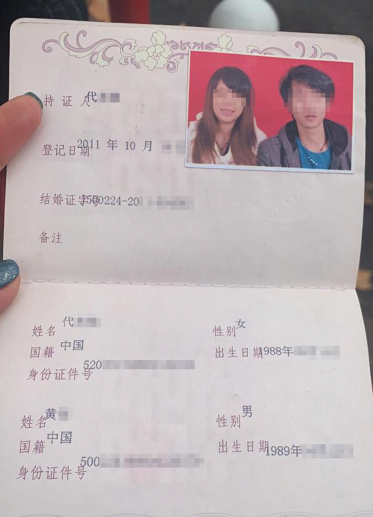 持 证 人 代
登记日期 2011 年 10 月
结婚证字号 J500224-20
备注
姓名 代 性别 女
国籍 中国 出生日期 1988年
身份证件号 520
姓名 黄 性别 男
国籍 中国 出生日期 1989年
身份证件号 500